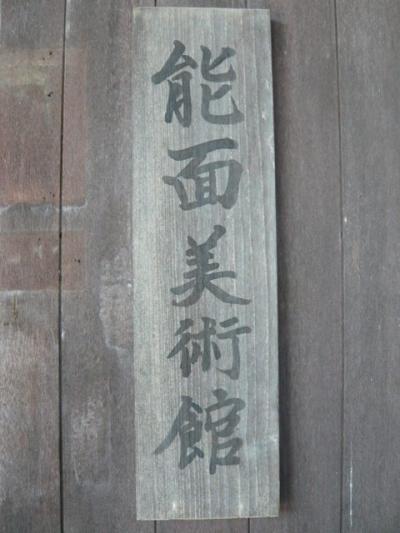 能面美術館